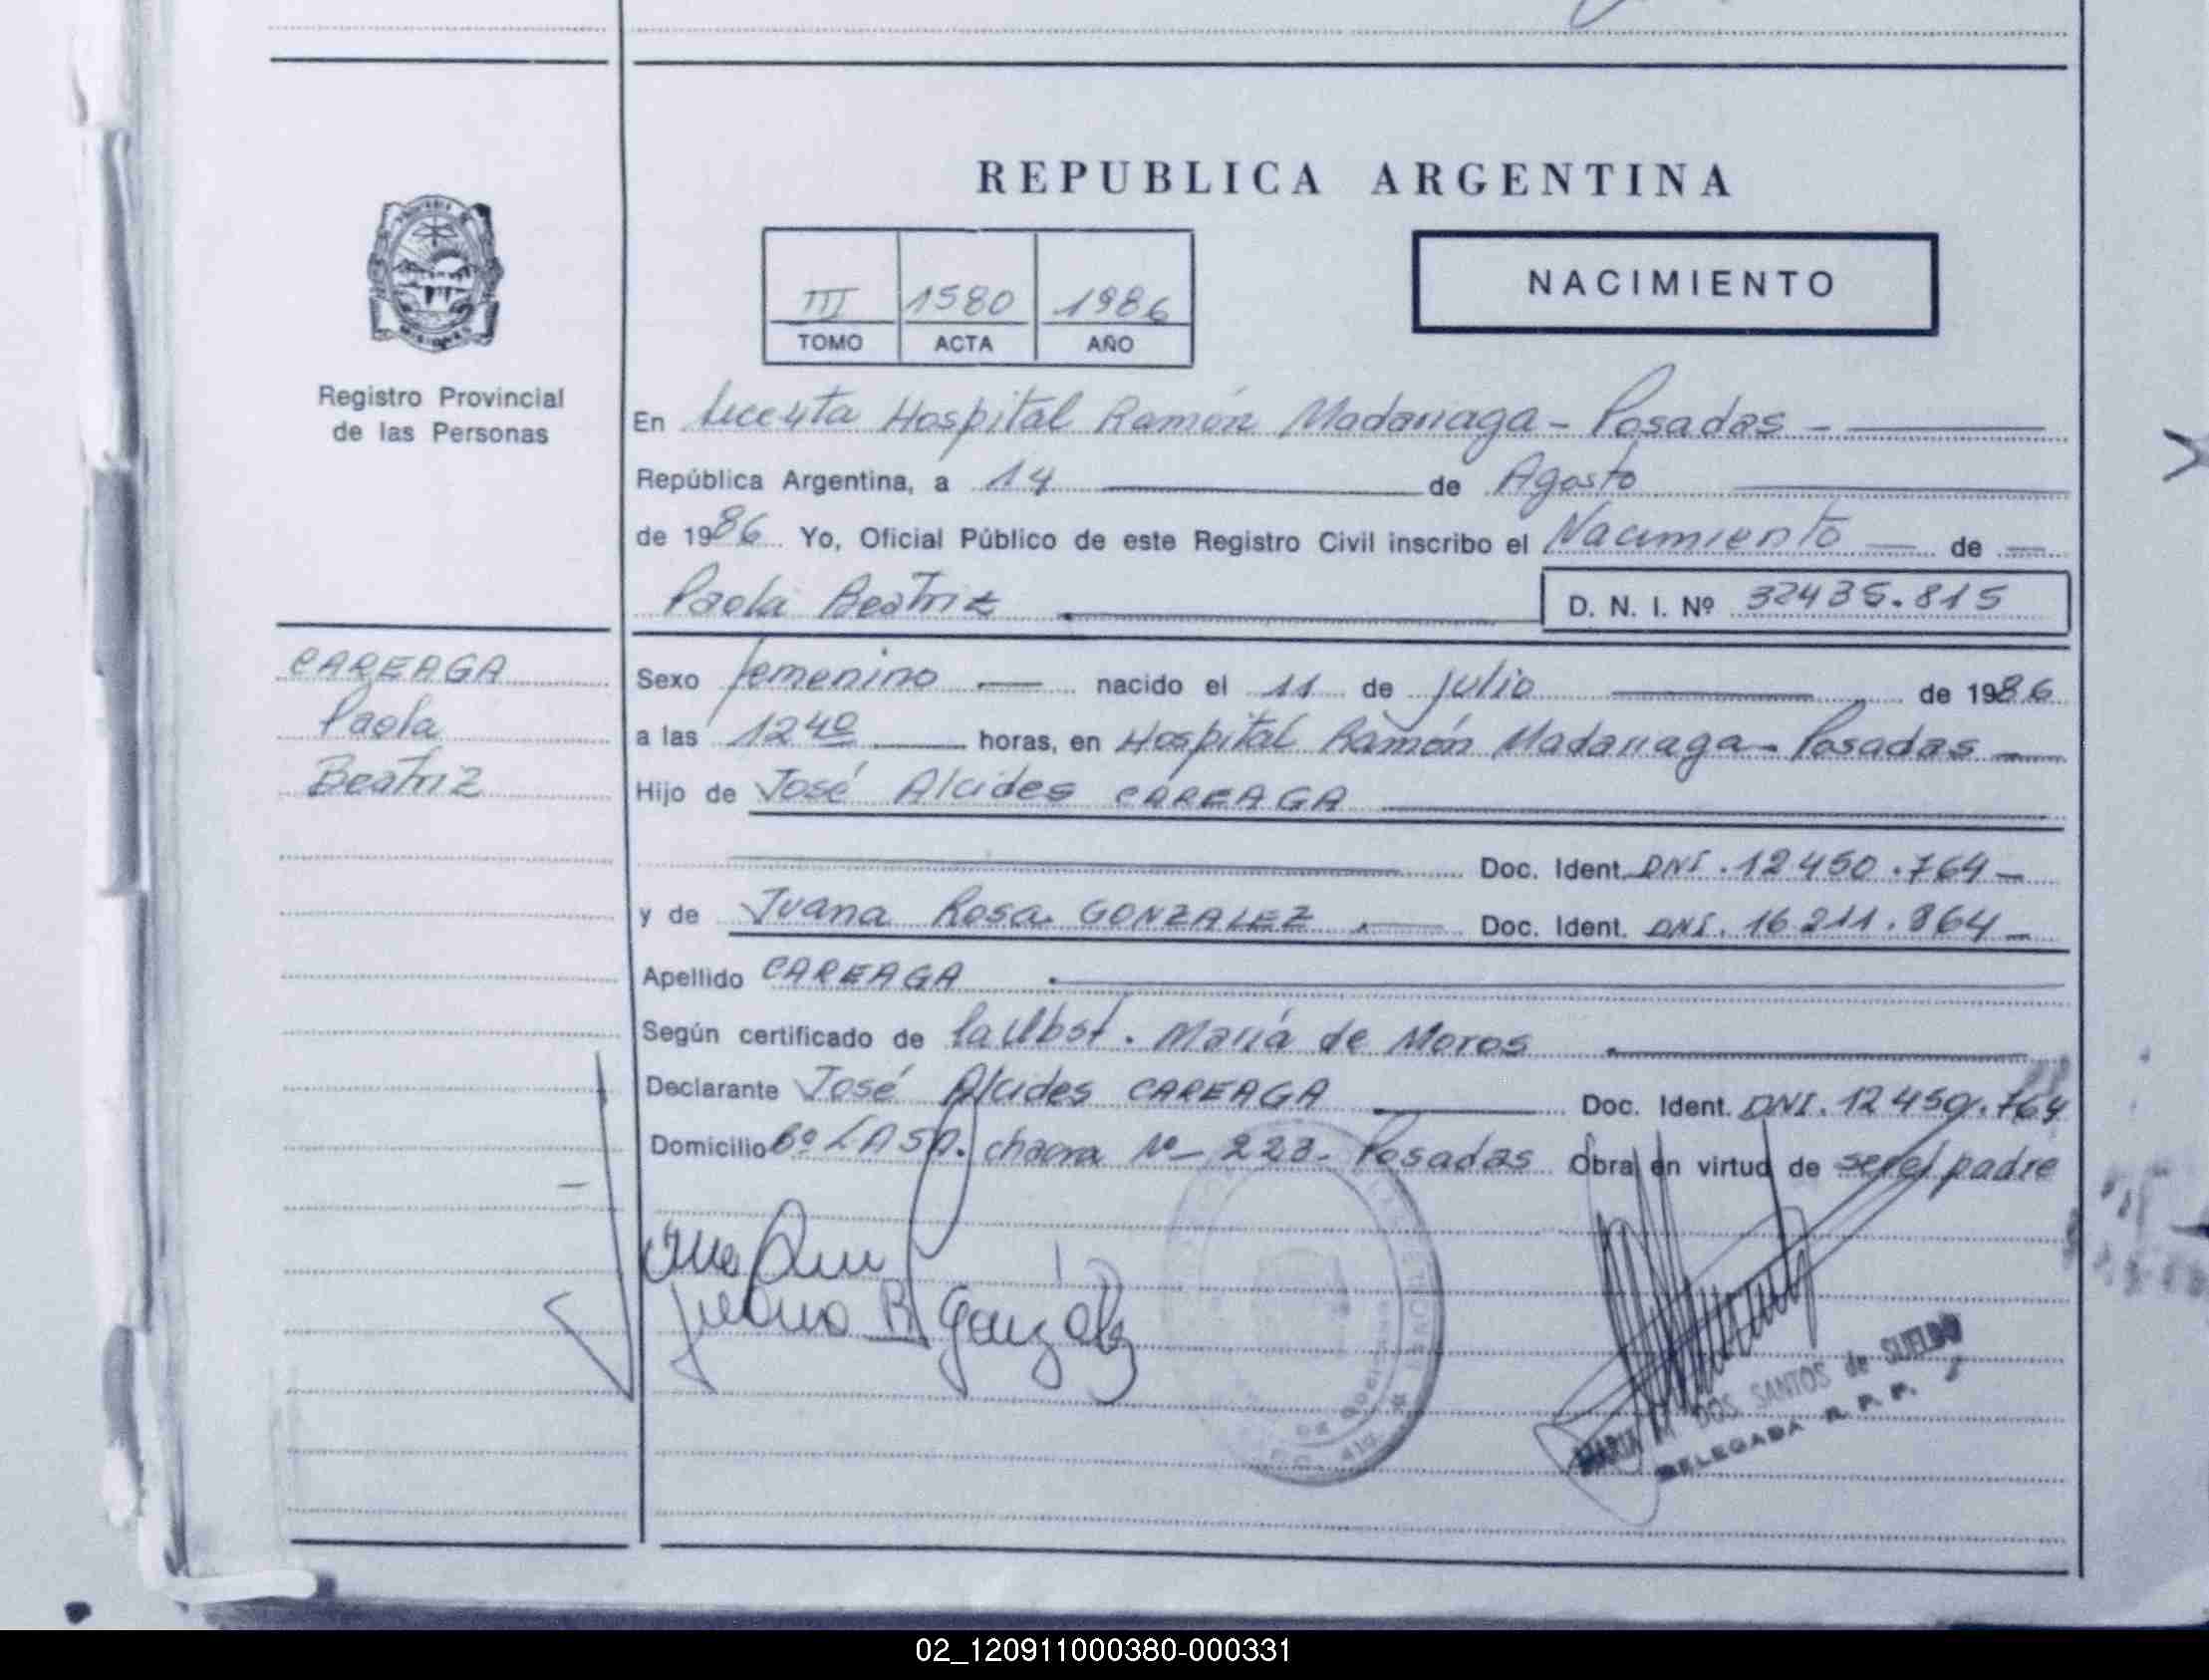 REPUBLICA ARGENTINA
III 1580 1986
TOMO ACTA AÑO
NACIMIENTO
Registro Provincial
de las Personas
En Hospital Ramón Madariaga - Posadas -
República Argentina, a 14 de Agosto
de 1986 Yo, Oficial Público de este Registro Civil inscribo el Nacimiento de
Paola Beatriz D. N. I. Nº 32435.815
CAREAGA
Paola
Beatriz
Sexo femenino nacido el 11 de julio de 1986
a las 12 40 horas, en Hospital Ramón Madariaga - Posadas
Hijo de José Alcides CAREAGA
Doc. Ident. DNI. 12450.764
y de Juana Rosa GONZALEZ Doc. Ident. DNI. 16211.864
Apellido CAREAGA
Según certificado de la Obst. María de Moros
Declarante José Alcides CAREAGA Doc. Ident. DNI. 12450.764
Domicilio Bº chacra Nº 223. Posadas Obra en virtud de ser el padre
Juana R González
MARIA DOS SANTOS de SUELDO
DELEGADA R. P. P.
02_120911000380-000331